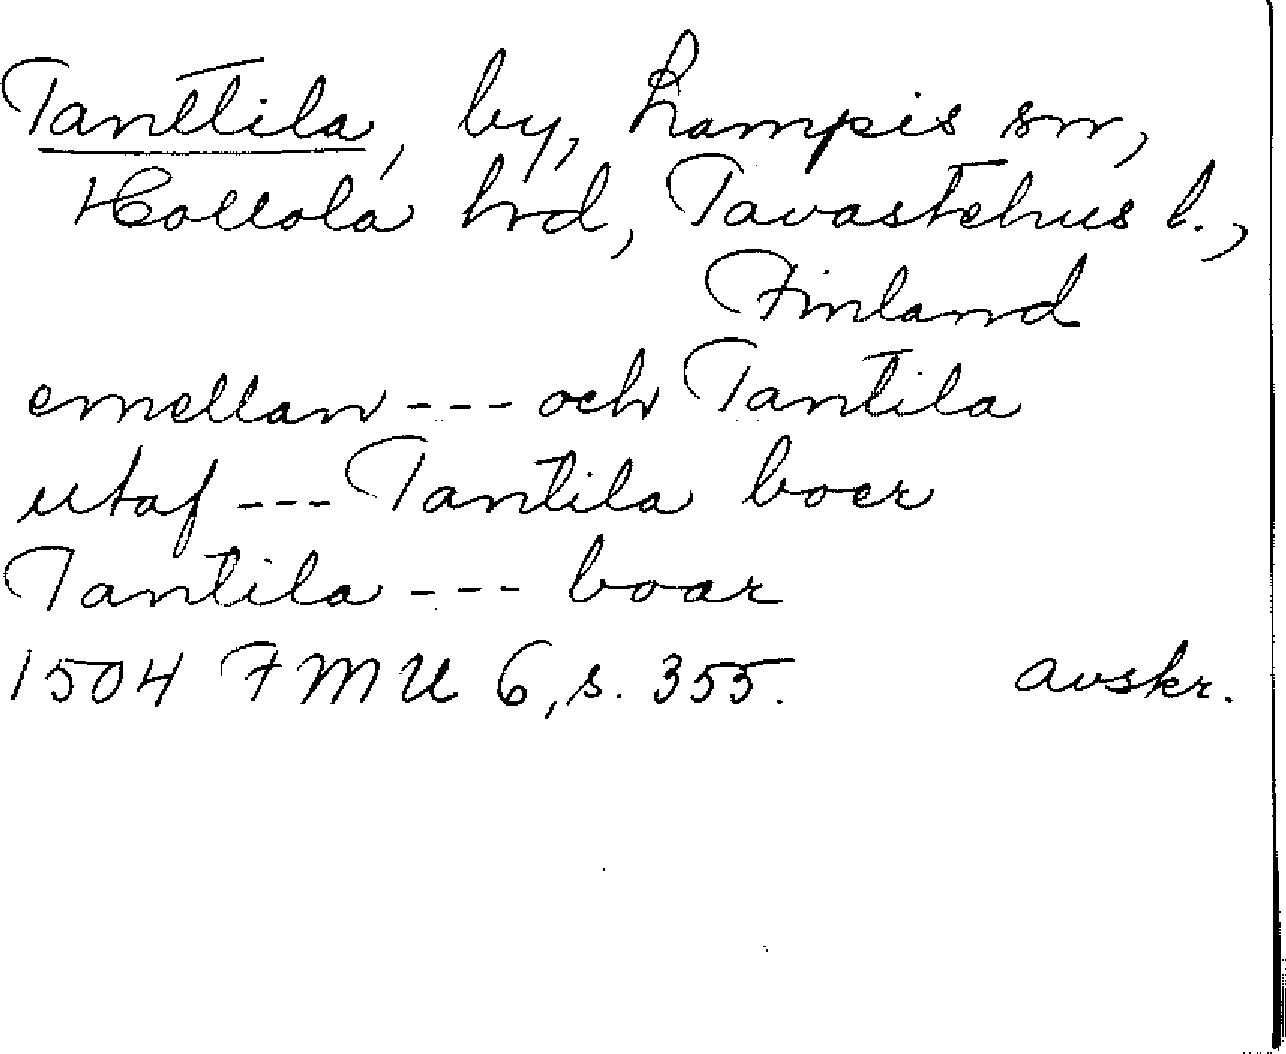 Tanttila, by, Lampis sn,
Hollola hrd, Tavastehus l.,
Finland
emellan --- och Tantila
utaf --- Tantila boer
Tantila --- boar
1504 FMU 6, s. 355. avskr.